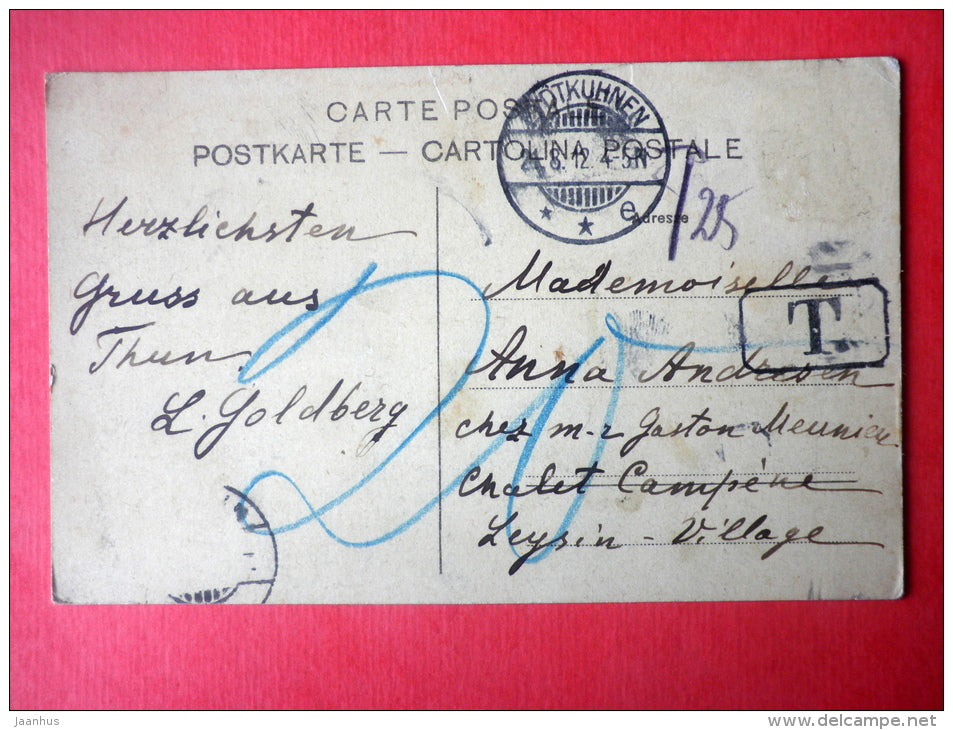 CARTE POS
POSTKARTE — CARTOLINA POSTALE
DTKUHNEN
8.12.4-5N
e
Adresse
T
25
Herzlichsten
Gruss aus
Thun.
L. Goldberg
20
Mademoiselle
T.
Anna Andresen
chez m-r Gaston Meunier
Chalet
Leysin - Village
Jaanhus
www.delcampe.net